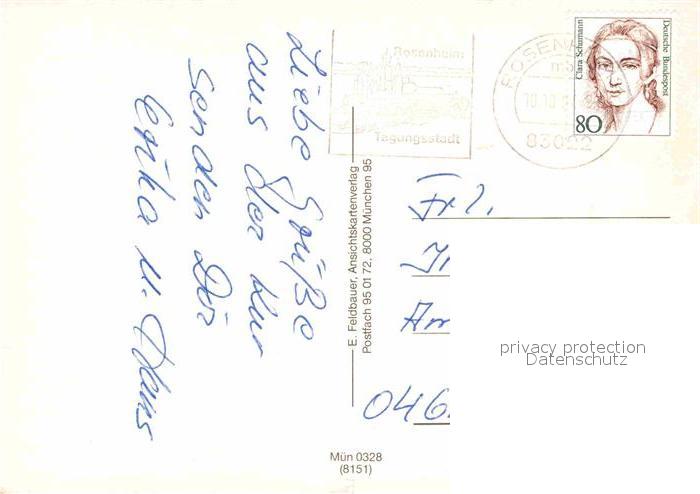 Liebe Grüße
aus der Kur
senden Dir
Erika u. Hans
Rosenheim
Tagungsstadt
ROSENHEIM
83022
Clara Schumann
Deutsche Bundespost
80
E. Feldbauer, Ansichtskartenverlag
Postfach 95 01 72, 8000 München 95
Frl.
046
privacy protection
Datenschutz
Mün 0328
(8151)